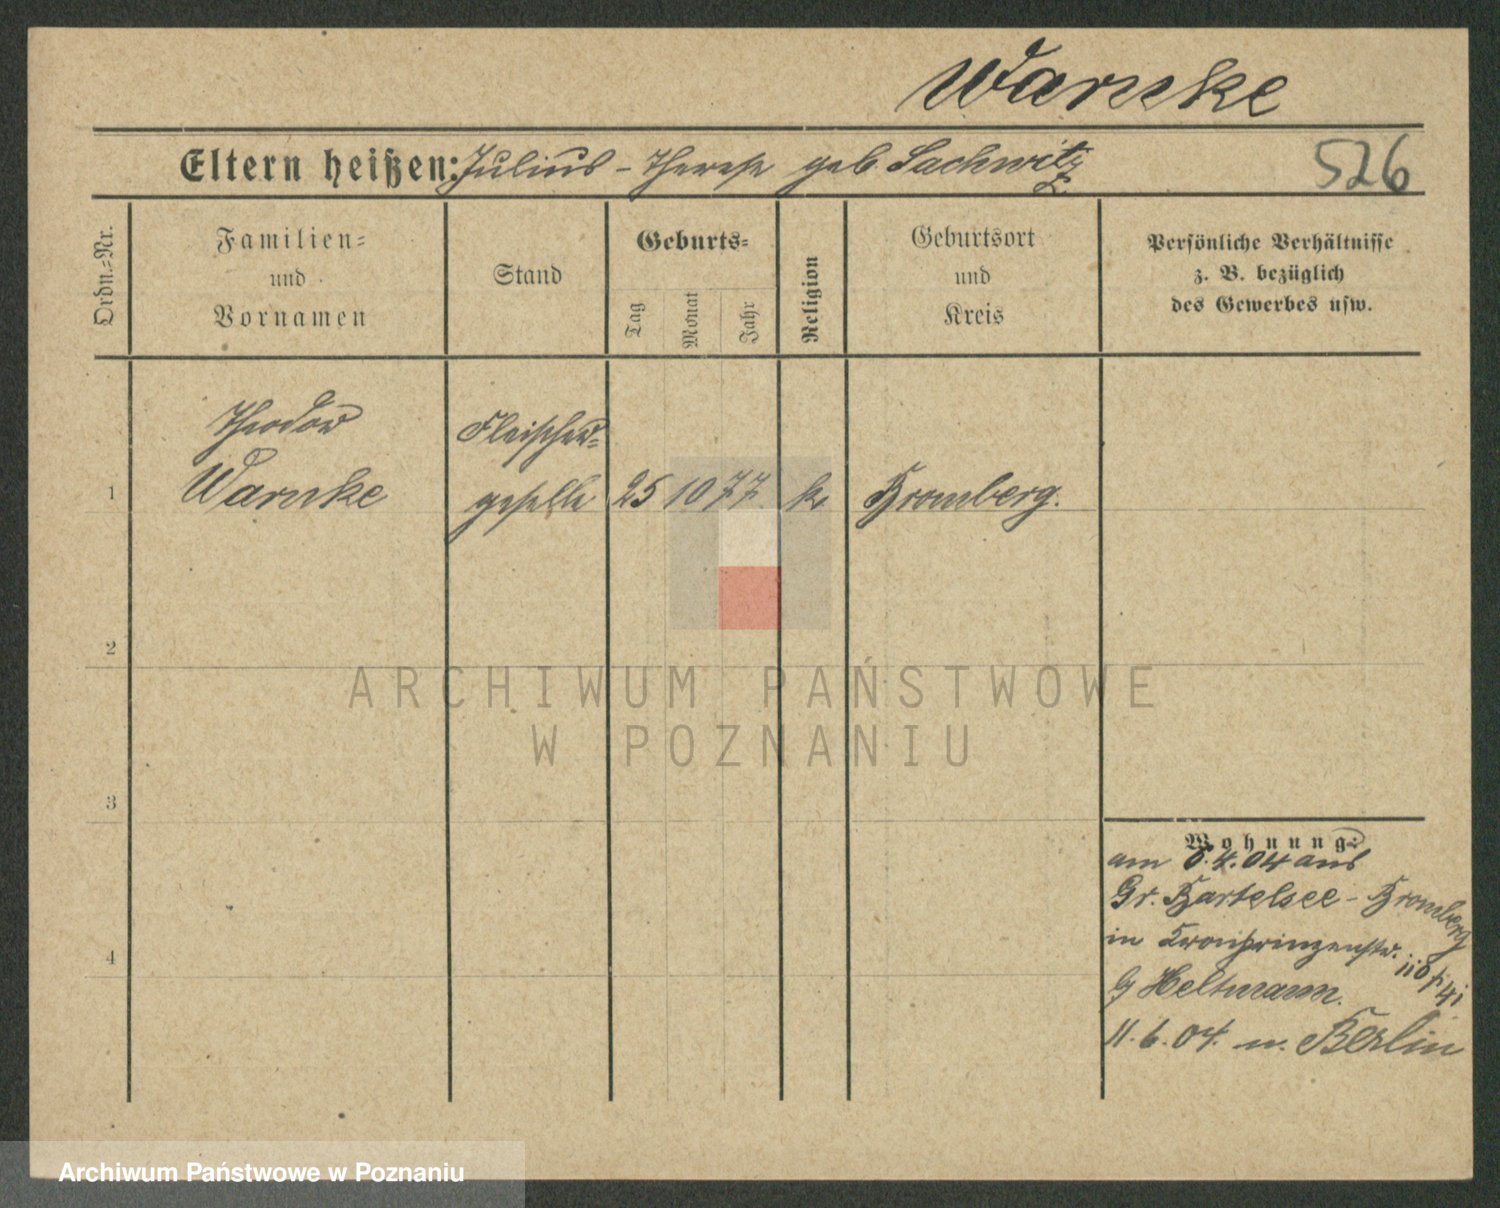 Warnke
Eltern heißen: Julius - Therese geb. Sachwitz
526
Ordn.-Nr.
Familien-
und
Vornamen
Stand
Geburts-
Tag
Monat
Jahr
Religion
Geburtsort
und
Kreis
Persönliche Verhältnisse
z. B. bezüglich
des Gewerbes usw.
Theodor
Warnke
Fleischer-
geselle
1
25 10 77
k.
Bromberg.
2
ARCHIWUM PAŃSTWOWE
W POZNANIU
3
4
Wohnung:
am 8.4.04 aus
Gr. Bartelsee - Bromberg
in Kronprinzenstr.
Heltmann.
11.6.04. n. Berlin
Archiwum Państwowe w Poznaniu